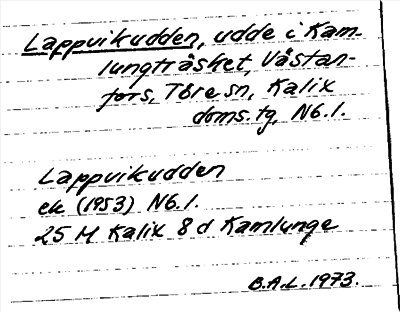 Lappvikudden, udde i Kam-
lungträsket, Västan-
fors, Töre sn, Kalix
doms.tg, Nb.l.
Lappvikudden
ek (1953) Nb.l.
25 M Kalix 8 d Kamlunge
B.A.L. 1973.